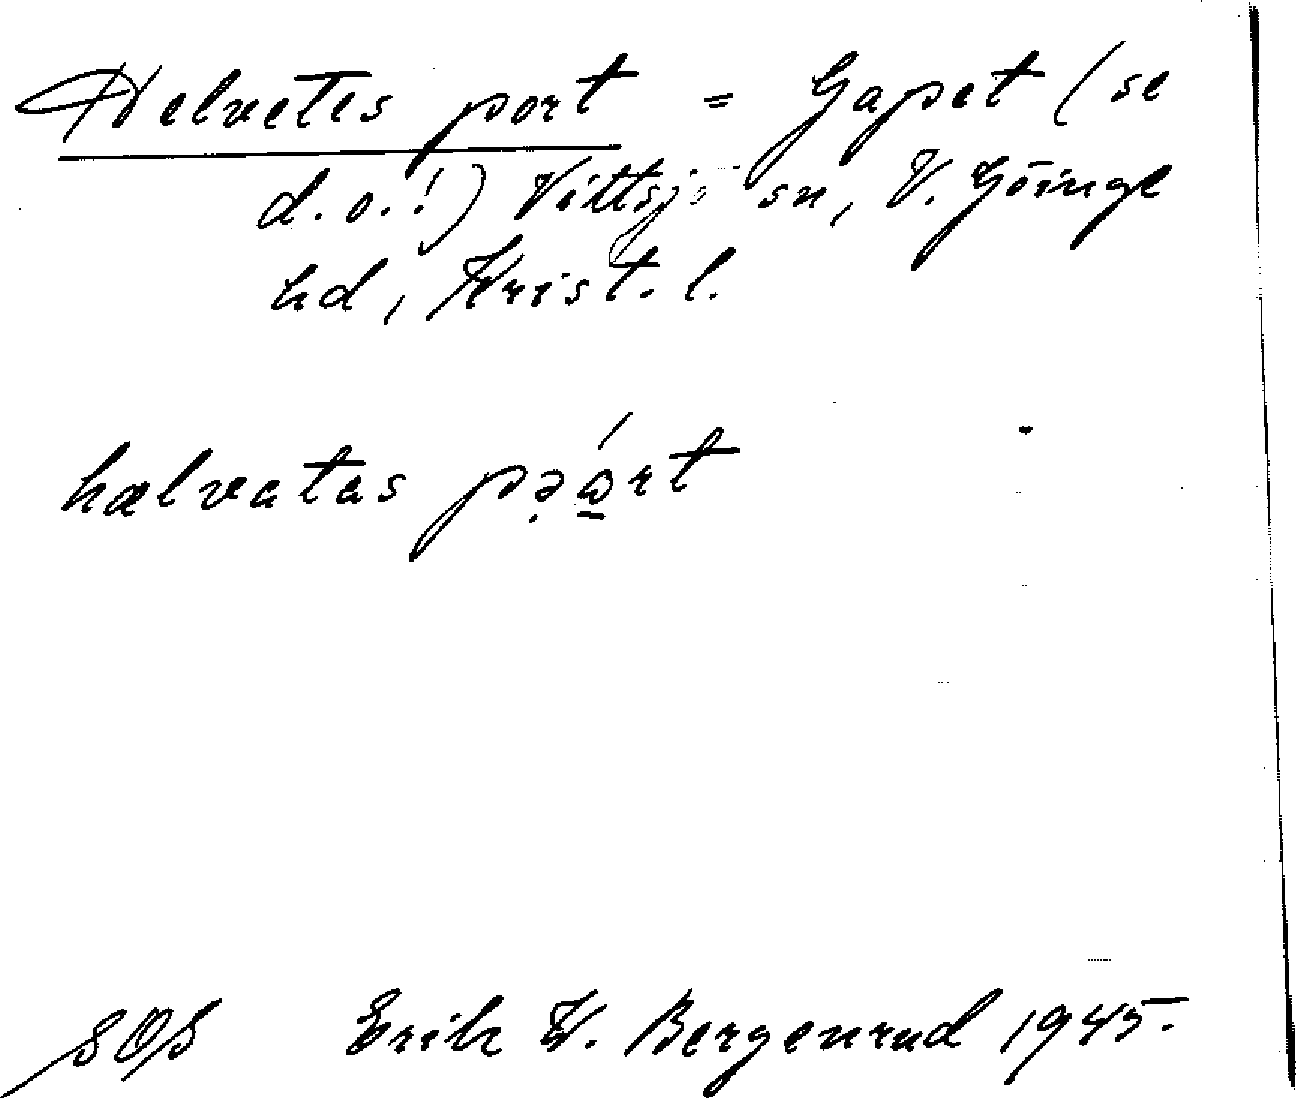 Helvetes port = Gapet (se
d.o.!) Vittsjö sn, V. Göinge
hd, Krist. l.
hælvatas pə̣ǻ̱rt
SOS Erik W. Bergenrud 1945.